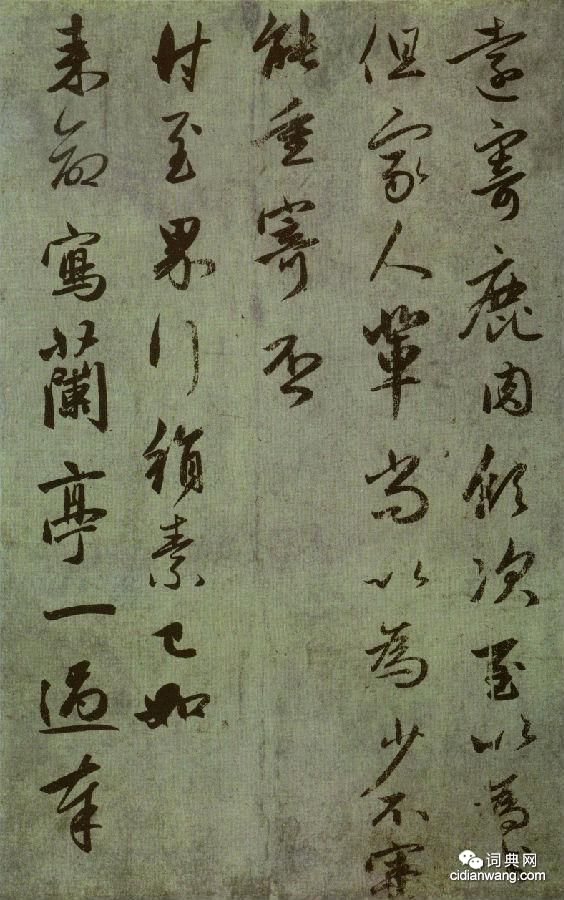 遠寄鹿肉領次至以為
但家人輩尚以為少不審
能重寄否
付至界行絹素已如
來命寫蘭亭一過奉
词典网
cidianwang.com